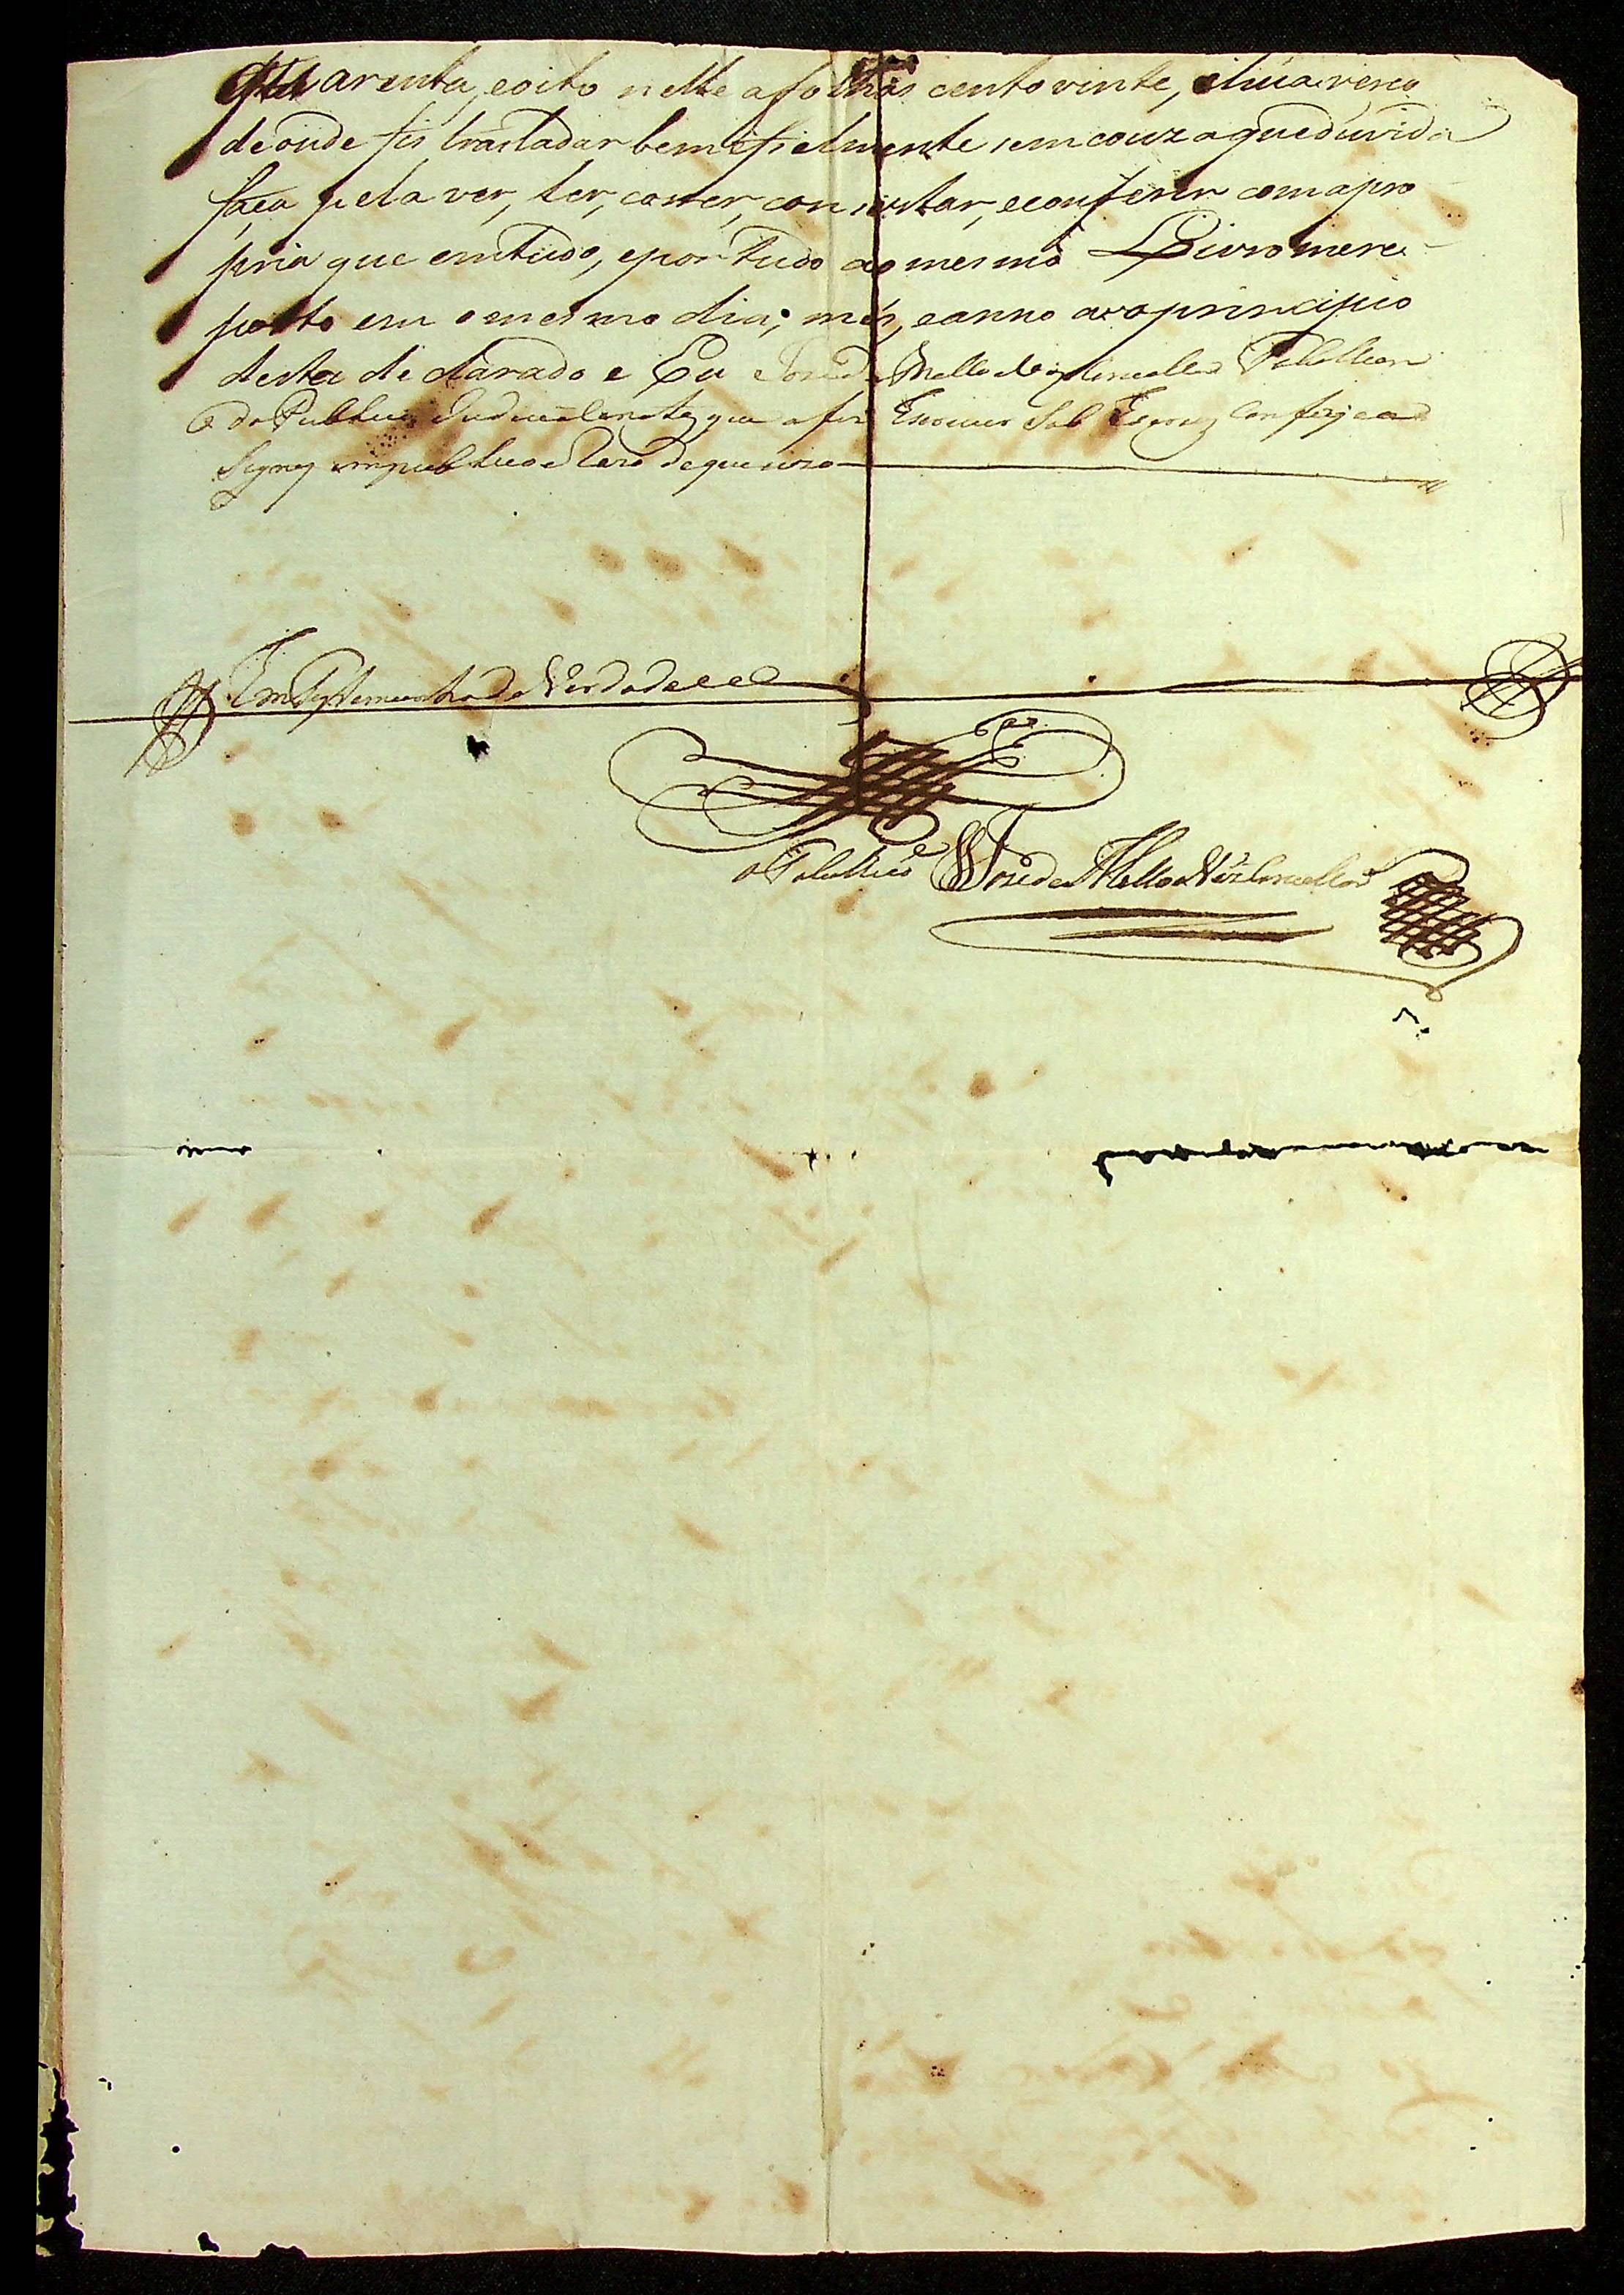 Quarenta, eoito nelle afolhas cento vinte, ehúa verço
de onde fis trasladar bem efielmente sem couza que duvida
faça pela ver, ler, correr, consertar, econferir com apro
pria que em tudo, epor tudo ao mesmo Livro mere
porto em o mesmo dia; més, eanno ao principio
desta declarado e Eu Joze de Mello e Vasconcellos Tabelliam
do Publico Judicial e notas que afiz Escrever Sob Escrevy Conferj e a
Signey em publico e Razo de que uzo
Em Testemunho da Verdade
o Tabelliaõ Joze de Mello e Vasconcellos